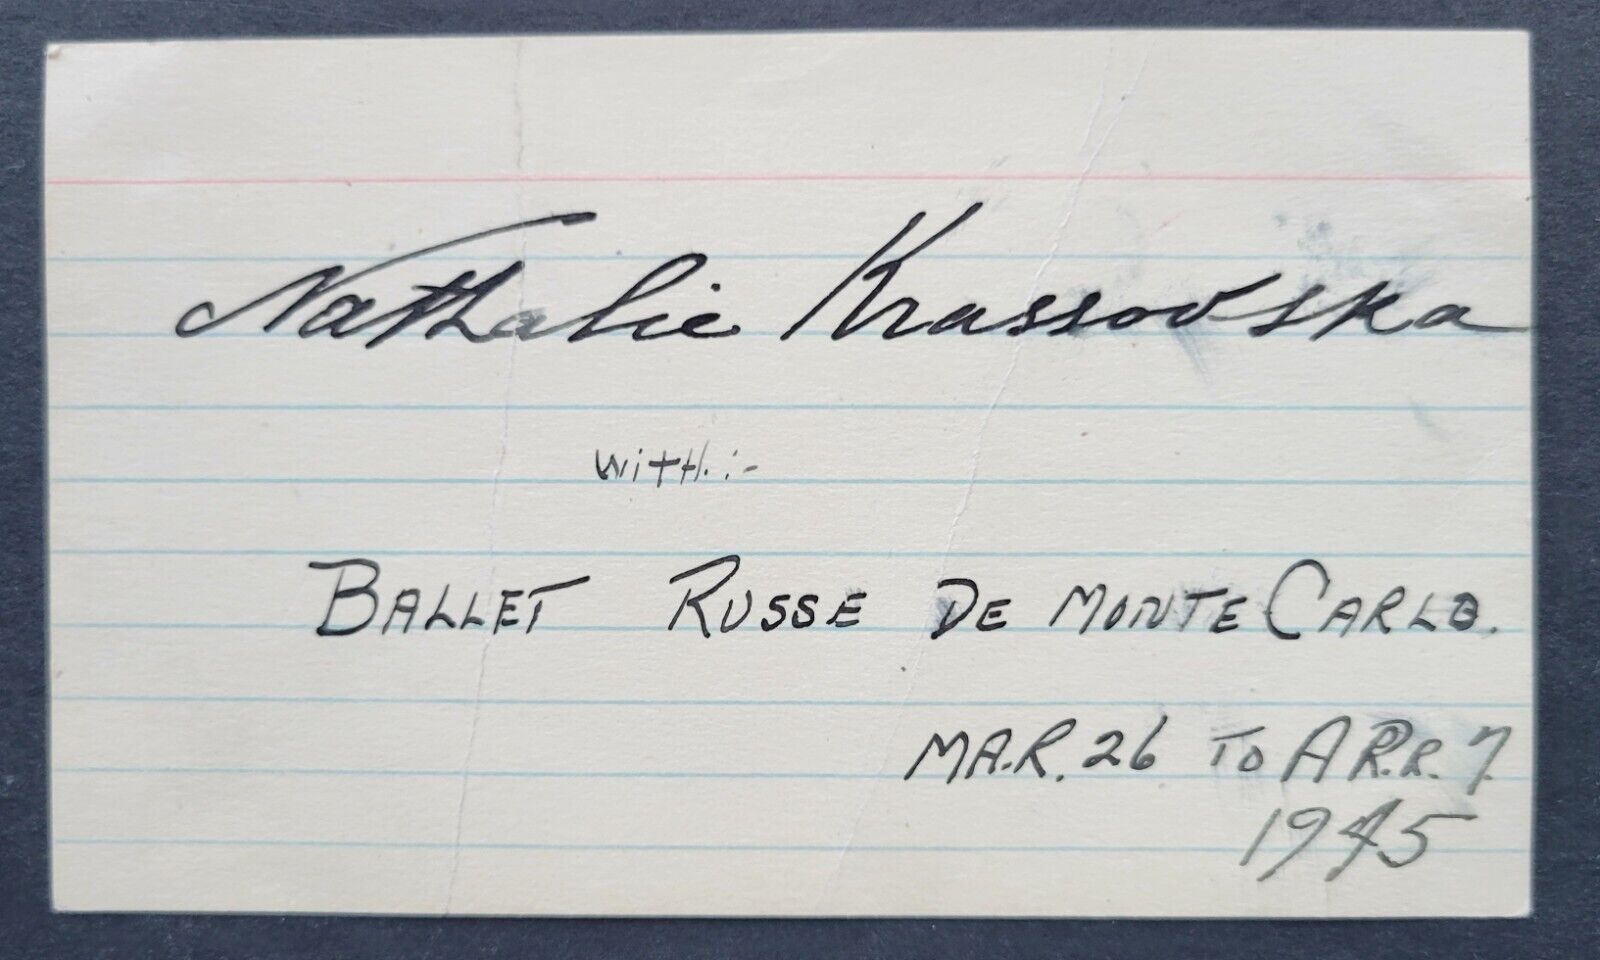 Nathalie Krassovska
WITH:-
BALLET RUSSE DE MONTE CARLO.
MAR. 26 TO APR. 7.
1945